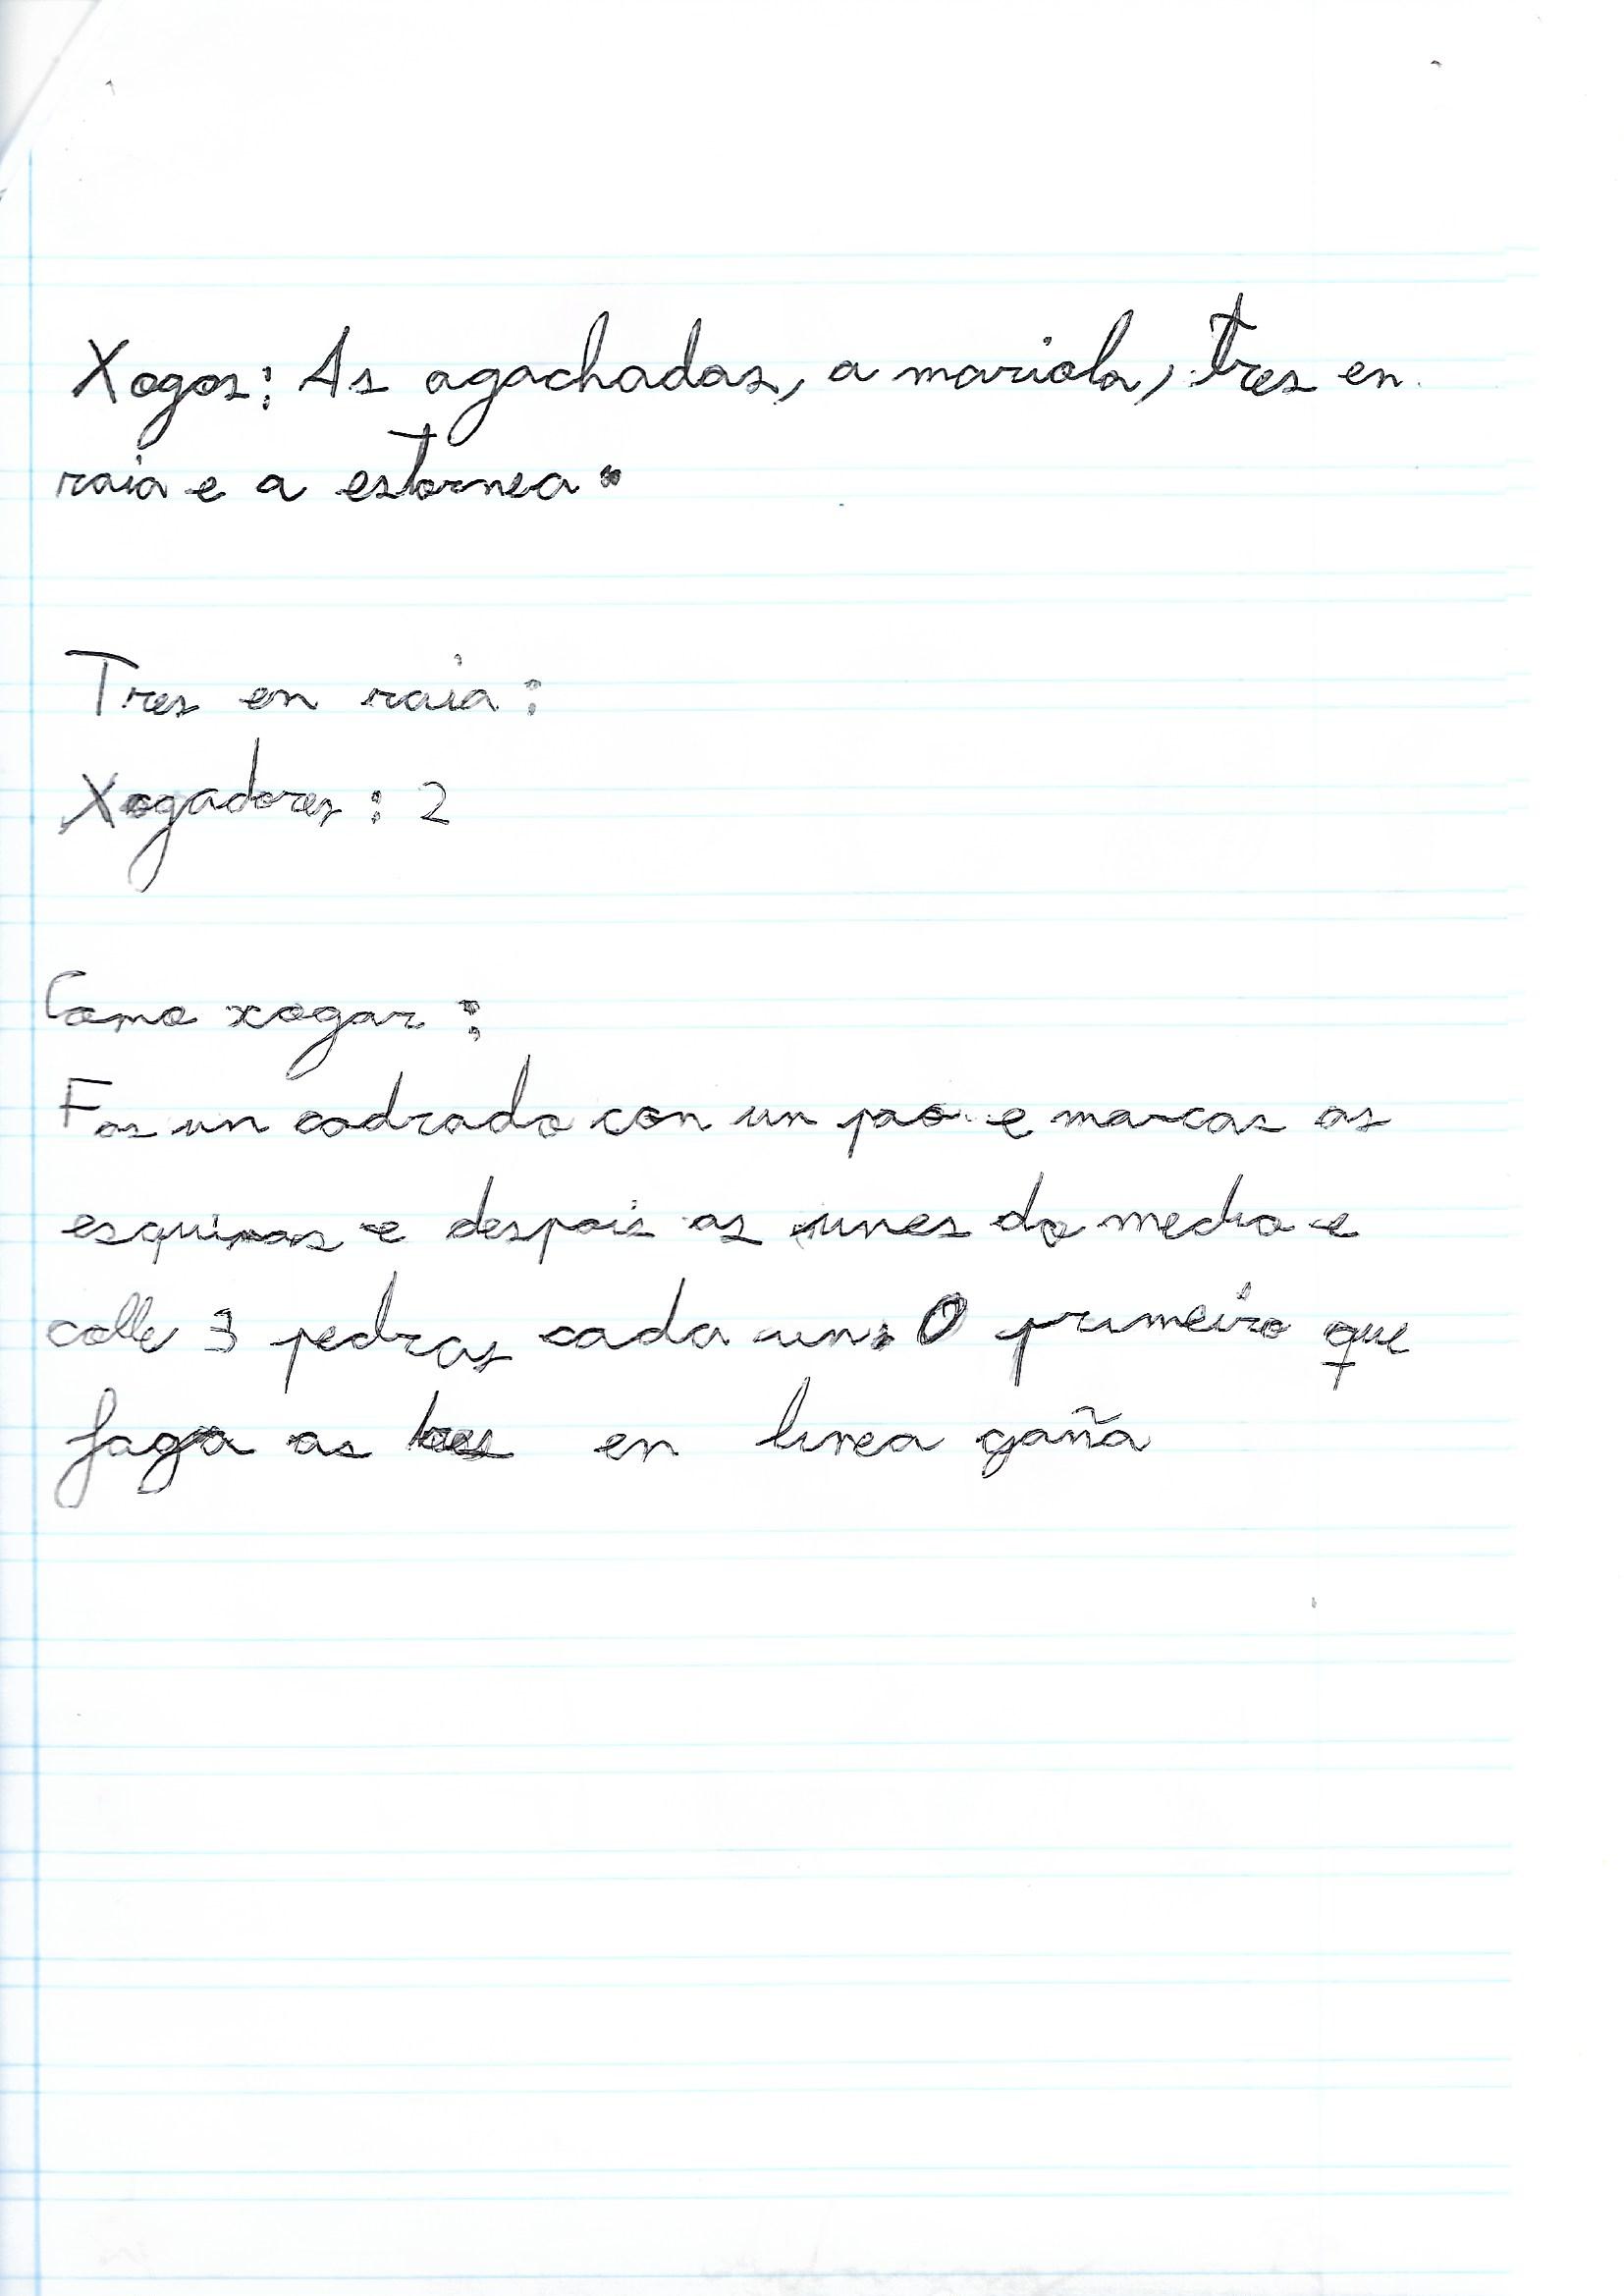 Xogos: As agachadas, a mariola, tres en
raia e a estornea.
Tres en raia:
Xogadores: 2
Como xogar:
Fas un cadrado con un pao e marcas as
esquinas e despois as unes do medio e
colle 3 pedras cada un. O primeiro que
faga as tres en linea gaña